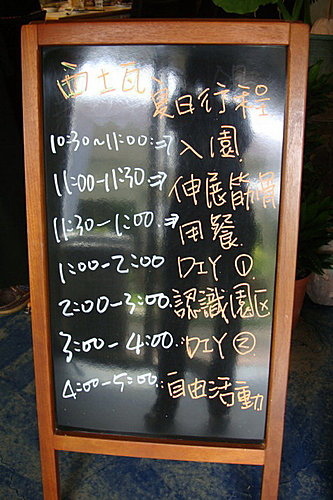 西土瓦
夏日行程
10:30~11:00:⇒入園
11:00-11:30⇒伸展筋骨
11:30-1:00.⇒用餐
1:00-2:00 DIY①
2:00-3:00.認識園区
3:00-4:00.:DIY②
4:00-5:00.:自由活動